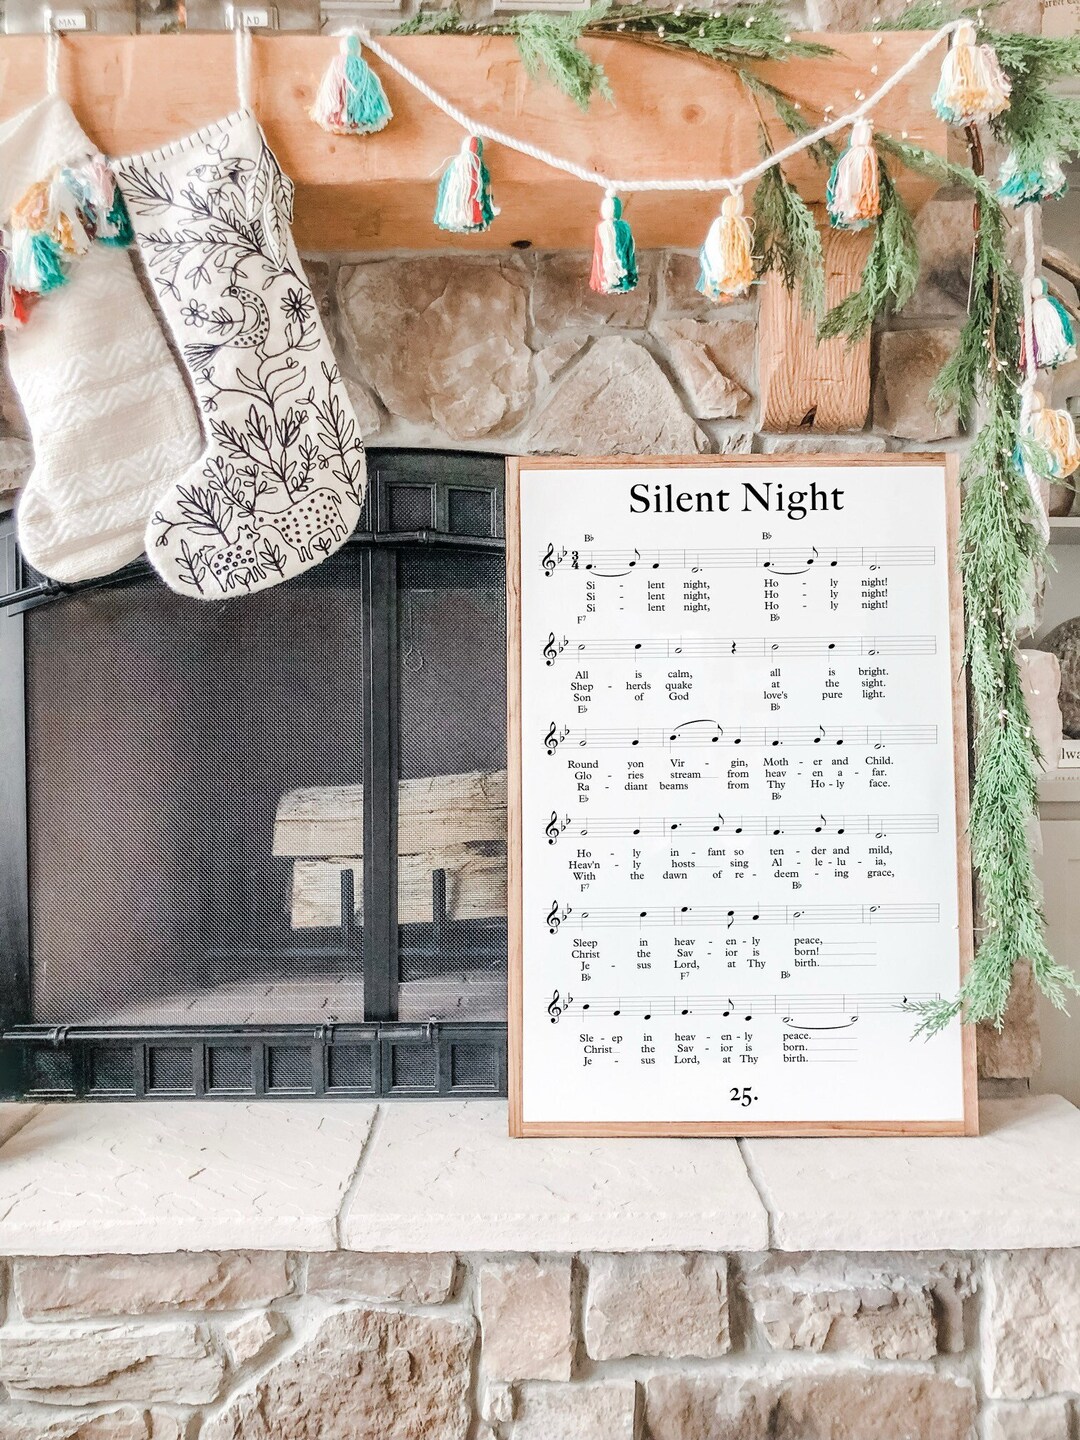 MAX
AD
Silent Night
B♭ B♭
3
4
Si - lent night, Ho - ly night!
Si - lent night, Ho - ly night!
Si - lent night, Ho - ly night!
F7 B♭
All is calm, all is bright.
Shep - herds quake at the sight.
Son of God love's pure light.
E♭ B♭
Round yon Vir - gin, Moth - er and Child.
Glo - ries stream from heav - en a - far.
Ra - diant beams from Thy Ho - ly face.
E♭ B♭
Ho - ly in - fant so ten - der and mild,
Heav'n - ly hosts sing Al - le - lu - ia,
With the dawn of re - deem - ing grace,
F7 B♭
Sleep in heav - en - ly peace,
Christ the Sav - ior is born!
Je - sus Lord, at Thy birth.
B♭ F7 B♭
Sle - ep in heav - en - ly peace.
Christ the Sav - ior is born.
Je - sus Lord, at Thy birth.
25.